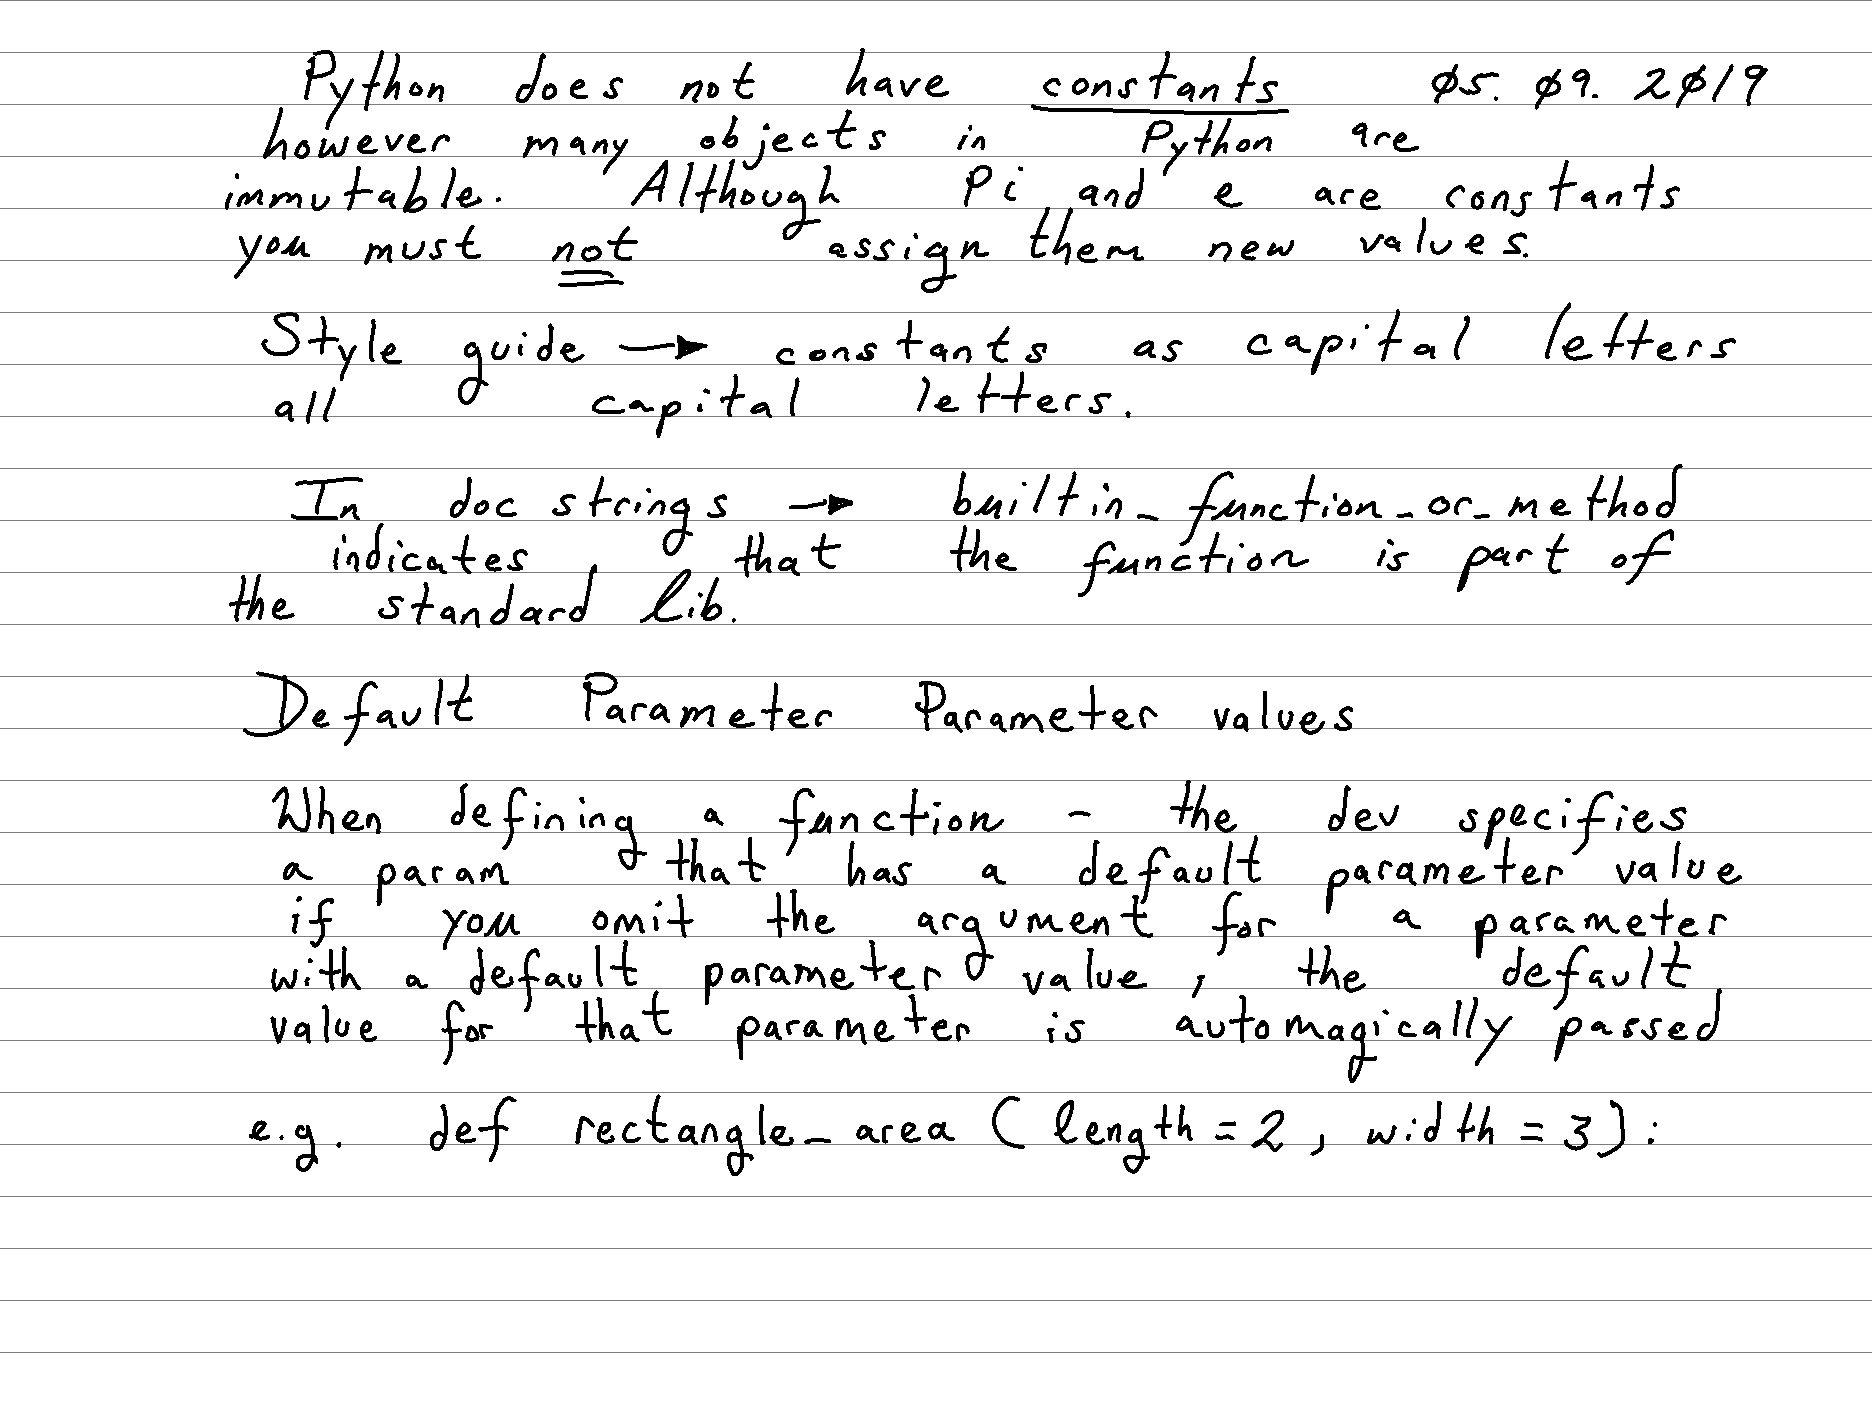 Python does not have constants 05. 09. 2019
however many objects in Python are
immutable. Although Pi and e are constants
you must not assign them new values.
Style guide → constants as capital letters
all capital letters.
In doc strings → builtin_function_or_method
indicates that the function is part of
the standard lib.
Default Parameter Parameter values
When defining a function - the dev specifies
a param that has a default parameter value
if you omit the argument for a parameter
with a default parameter value, the default
value for that parameter is automagically passed
e.g. def rectangle_area (length = 2, width = 3):